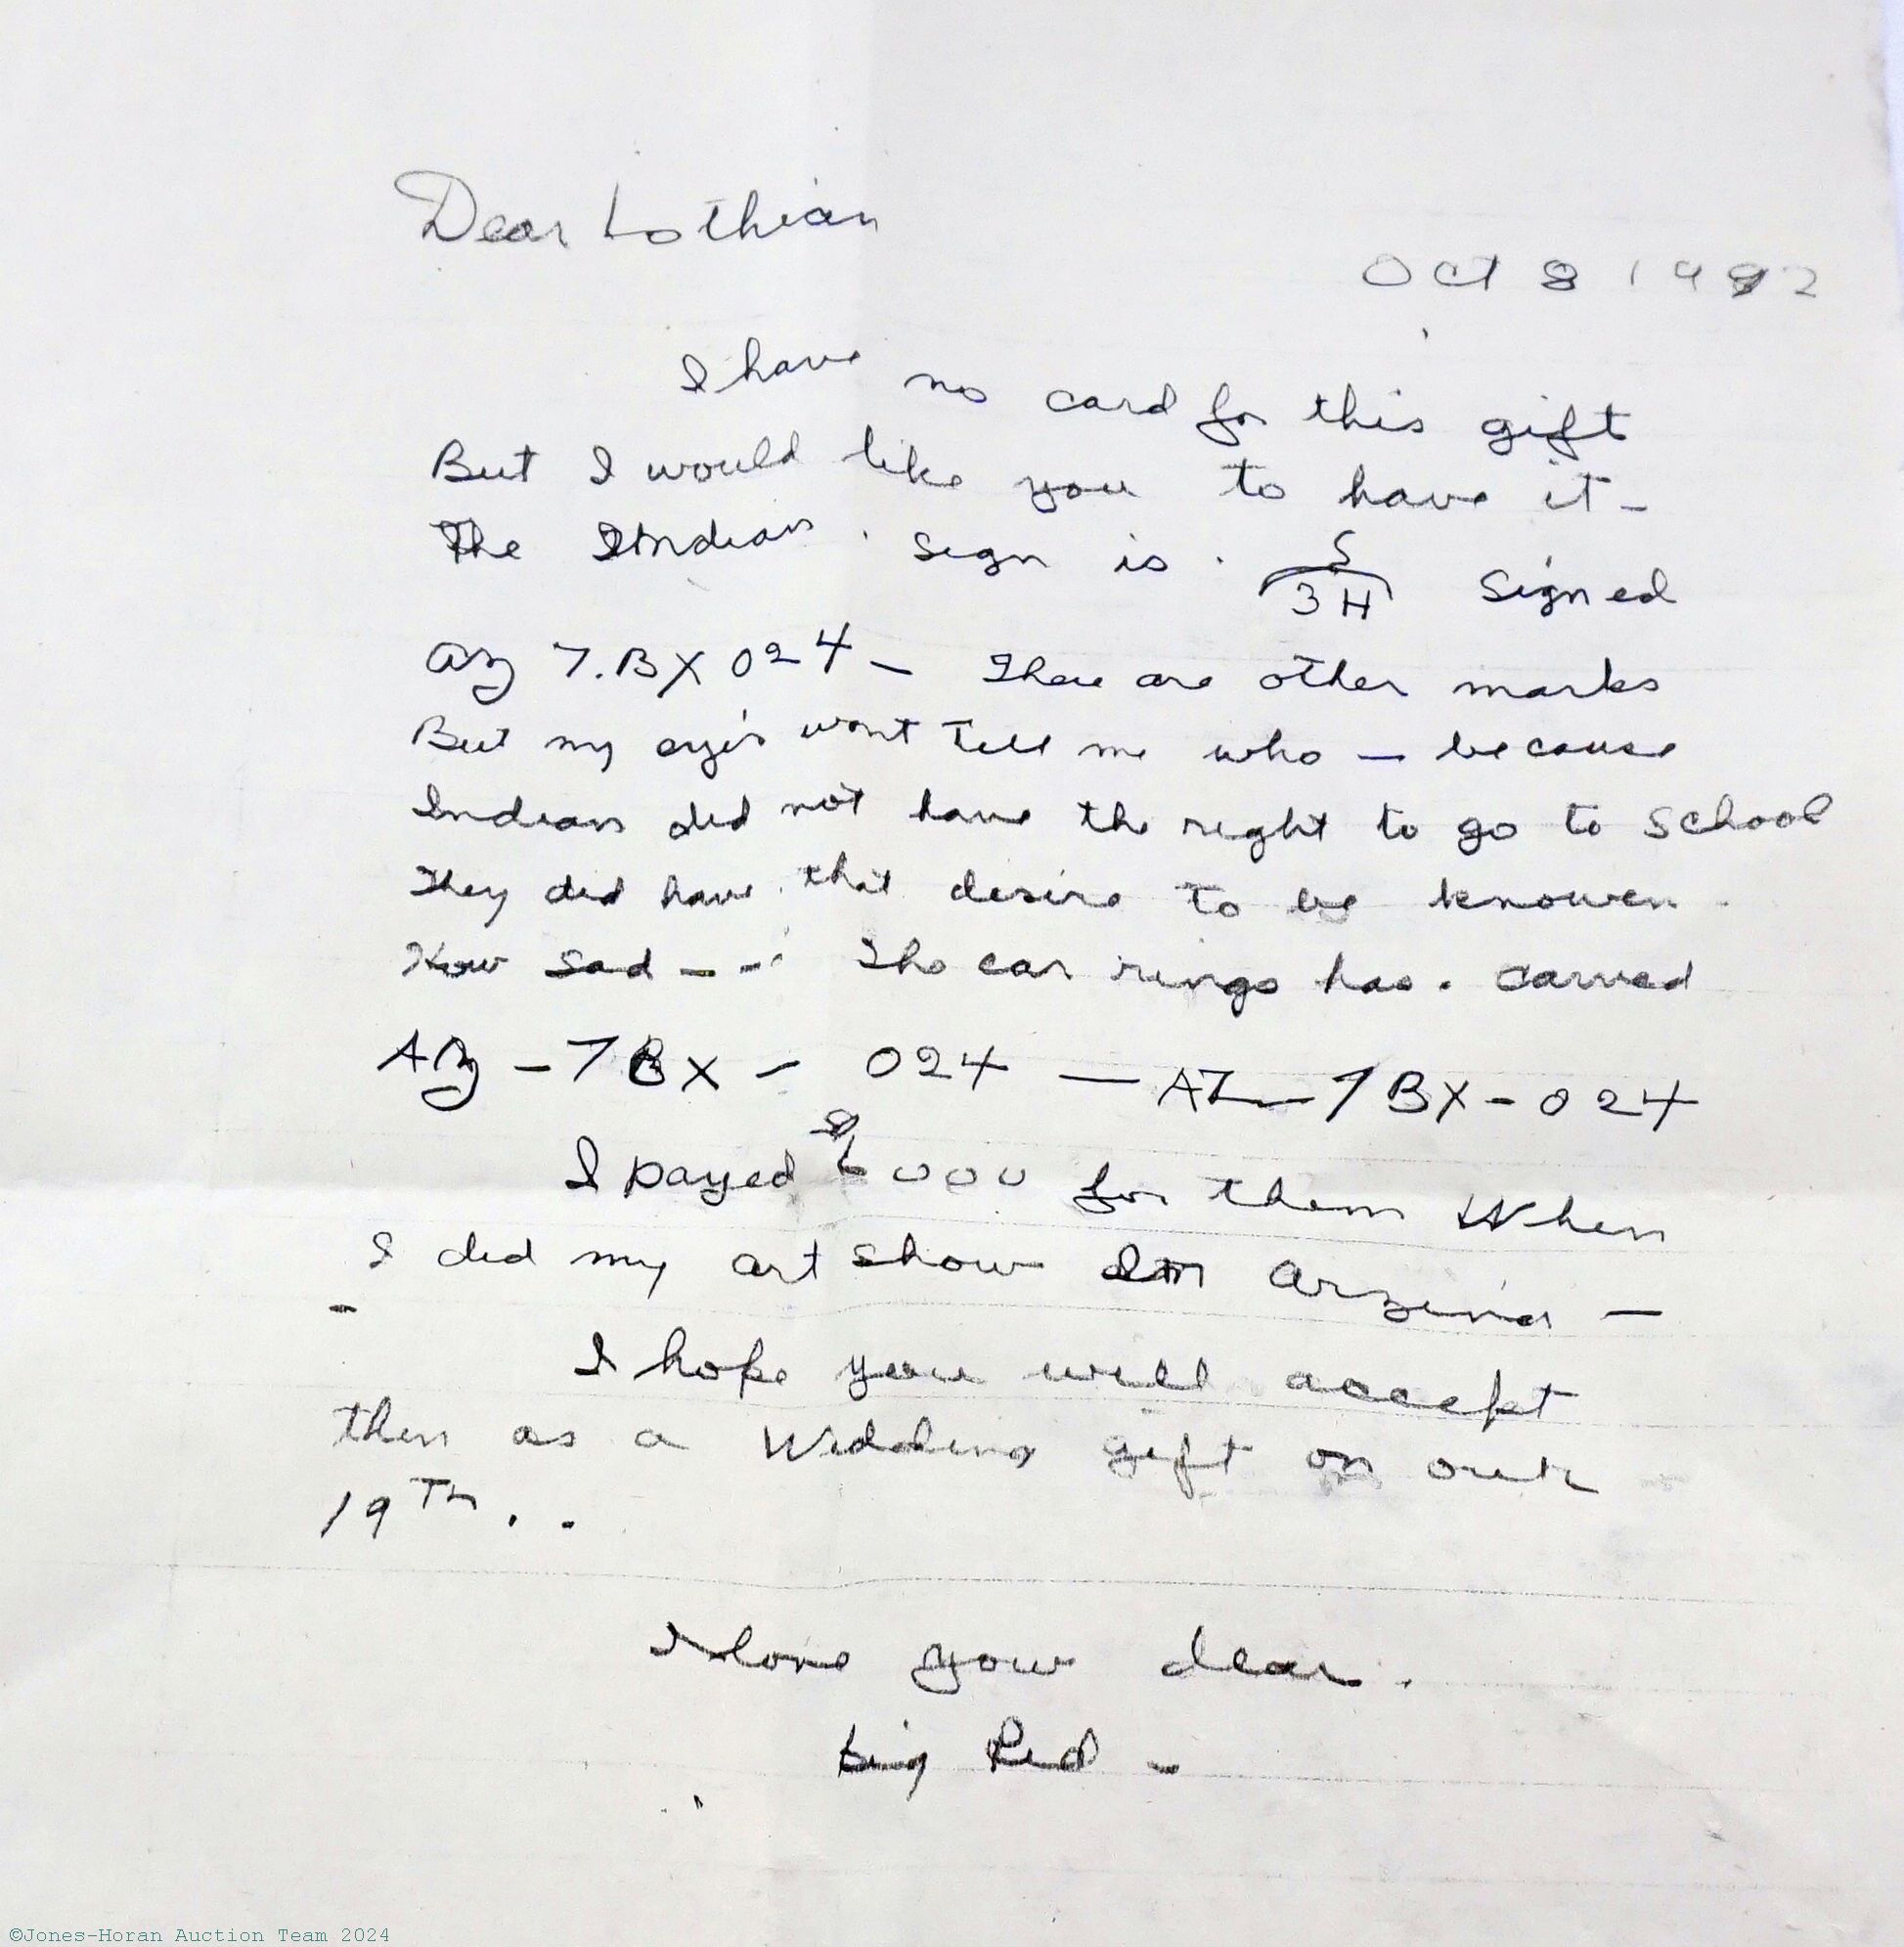 Dear Lothian
Oct 8 1992
I have no card for this gift
But I would like you to have it -
The Indian sign is . S
3H Signed
Az 7.BX 024 - There are other marks
But my eyes wont Tell me who - because
Indians did not have the right to go to School
They did have that desire to be knowen .
How sad - - The ear rings has . carved
AZ - 7BX - 024 - AZ - 7BX - 024
I payed 000 for them When
I did my art show In Arzina -
-
I hope you will accept
then as a Wedding gift on
19Th . .
I love you dear .
big Red -
©Jones-Horan Auction Team 2024